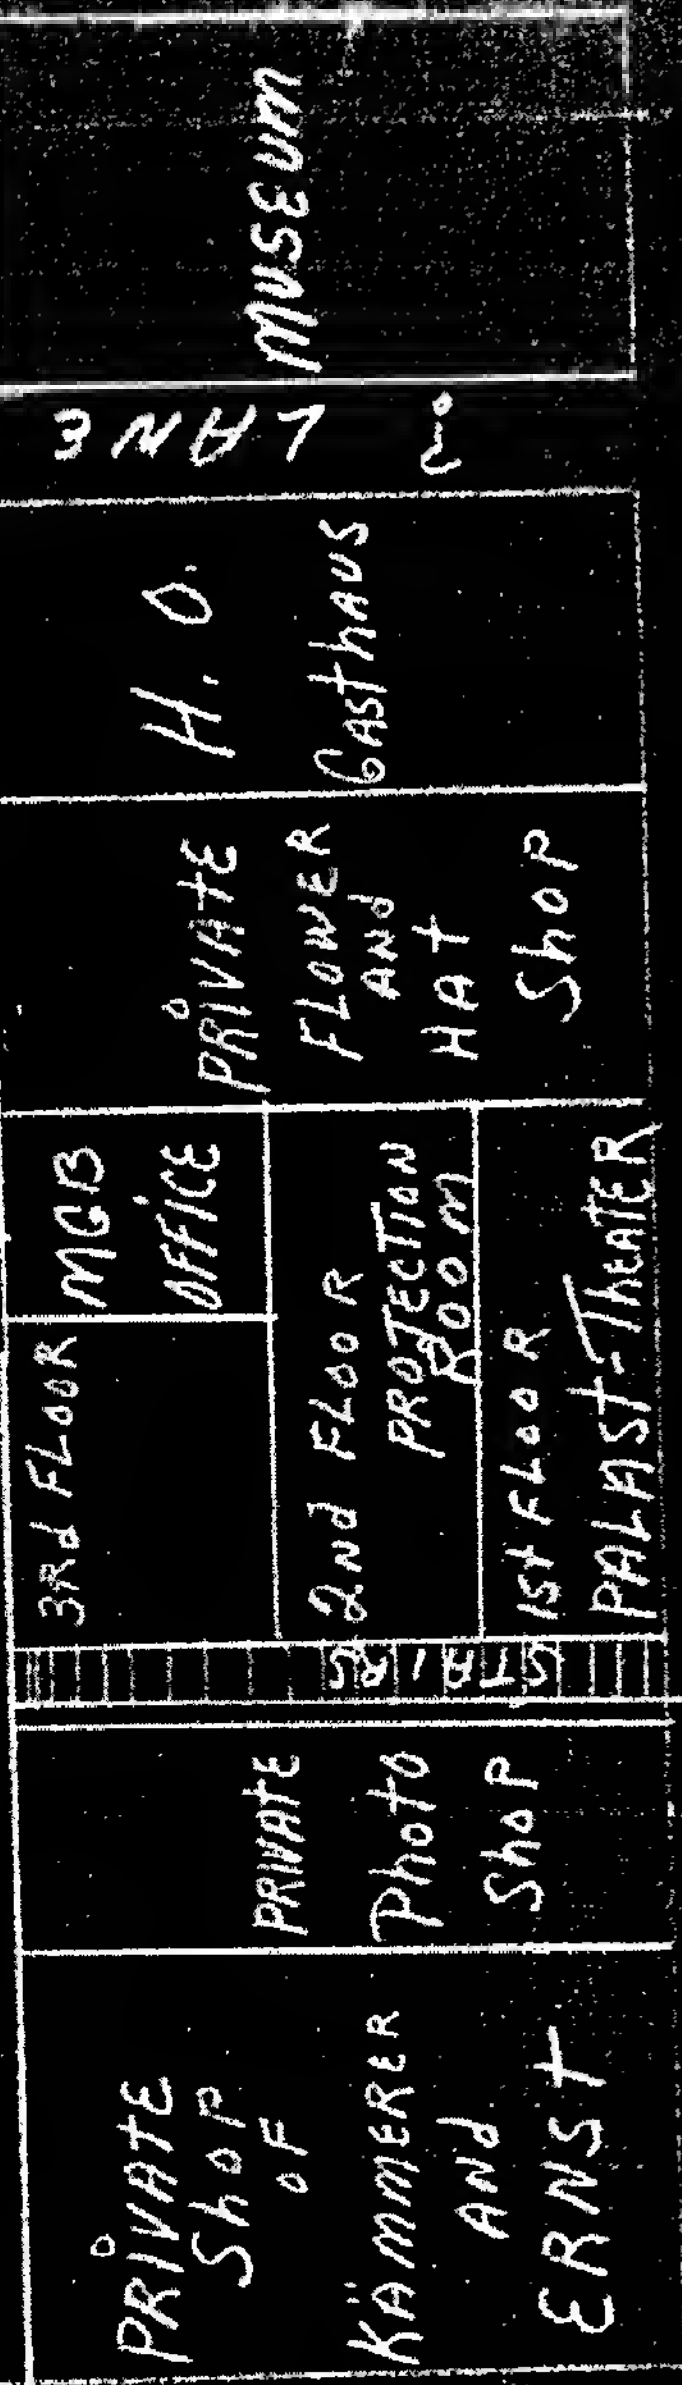 PRIVATE
ShoP
OF
KÄMMERER
ANd
ERNST
PRIVATE
Photo
ShoP
STAIRS
3Rd FLOOR
MGB
OFFICE
2Nd FLOOR
PROJECTION
ROOM
1st FLOOR
PALAST-THEATER
PRIVATE
FLOWER
ANd
HAt
ShoP
H. O.
GASthAUS
? LANE
MUSEUM